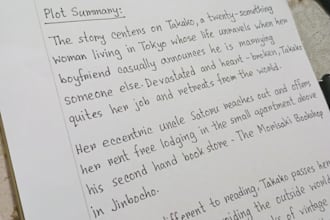 Plot Summary:
The story centers on Takako, a twenty-something
woman living in Tokyo whose life unravels when her
boyfriend casually announces he is marrying
someone else. Devastated and heart-broken, Takako
quites her job and retreats from the world.
Her eccentric uncle Satoru reaches out and offers
her rent free lodging in the small apartment above
his second hand book store - The Morisaki Bookshop
in Jimbocho.
different to reading, Takako passes her
the outside world
of vintage